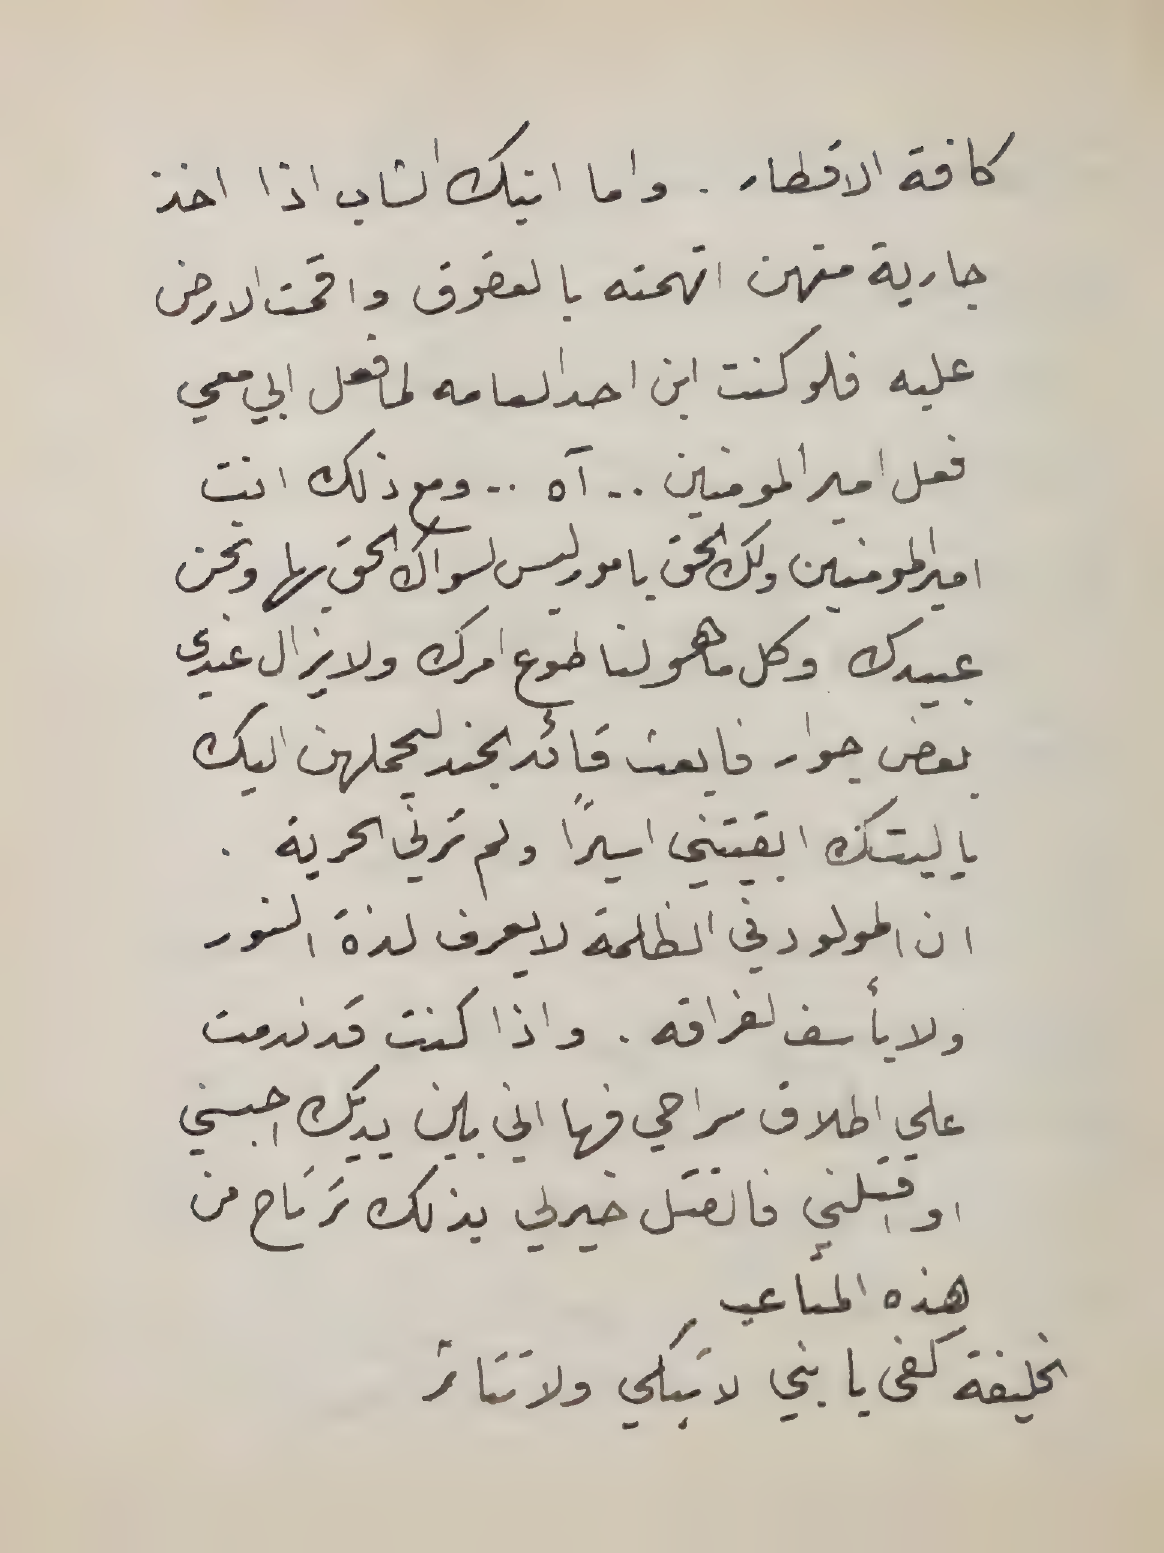 كافة الاقطار . واما ابنك الشاب اذا اخذ
جارية منهن اتهمته بالعقوق واقمت الارض
عليه فلو كنت ابن احد العامه لما فعل ابي معي
فعل امير المومنين .. آه .. ومع ذلك انت
امير المومنين ولك الحق بامور ليس لسواك الحق بها ونحن
عبيدك وكل ما هو لنا طوع امرك ولا يزال عندي
بعض جوار فابعث قائد الجند ليحملهن اليك
يا ليتك ابقيتني اسيرًا ولم ترني الحرية .
ان المولود في الظلمة لا يعرف لذة النور
ولا يأسف لفراقه . واذا كنت قد ندمت
علي اطلاق سراحي فها اني بين يديك احبسني
او اقتلني فالقتل خير لي بذلك ترتاح من
هذه المتاعب
الخليفة كفى يا بني لا تبكي ولا تتاثر